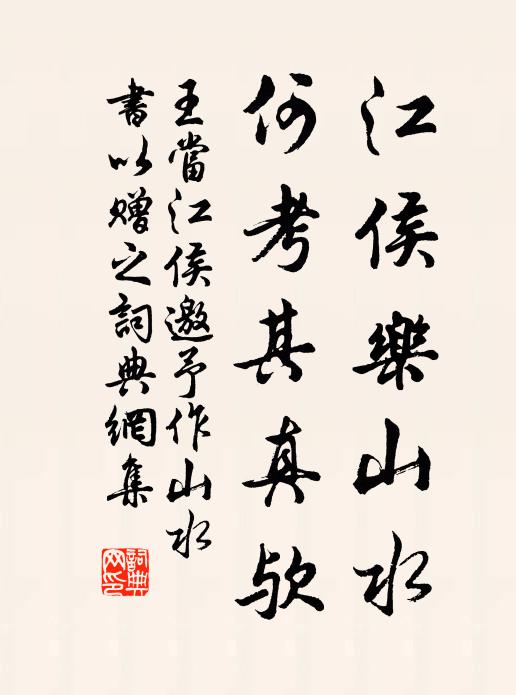 江侯樂山水
何考其真欤
王當江侯邀予作山水
書以赠之詞典網集
詞典网印